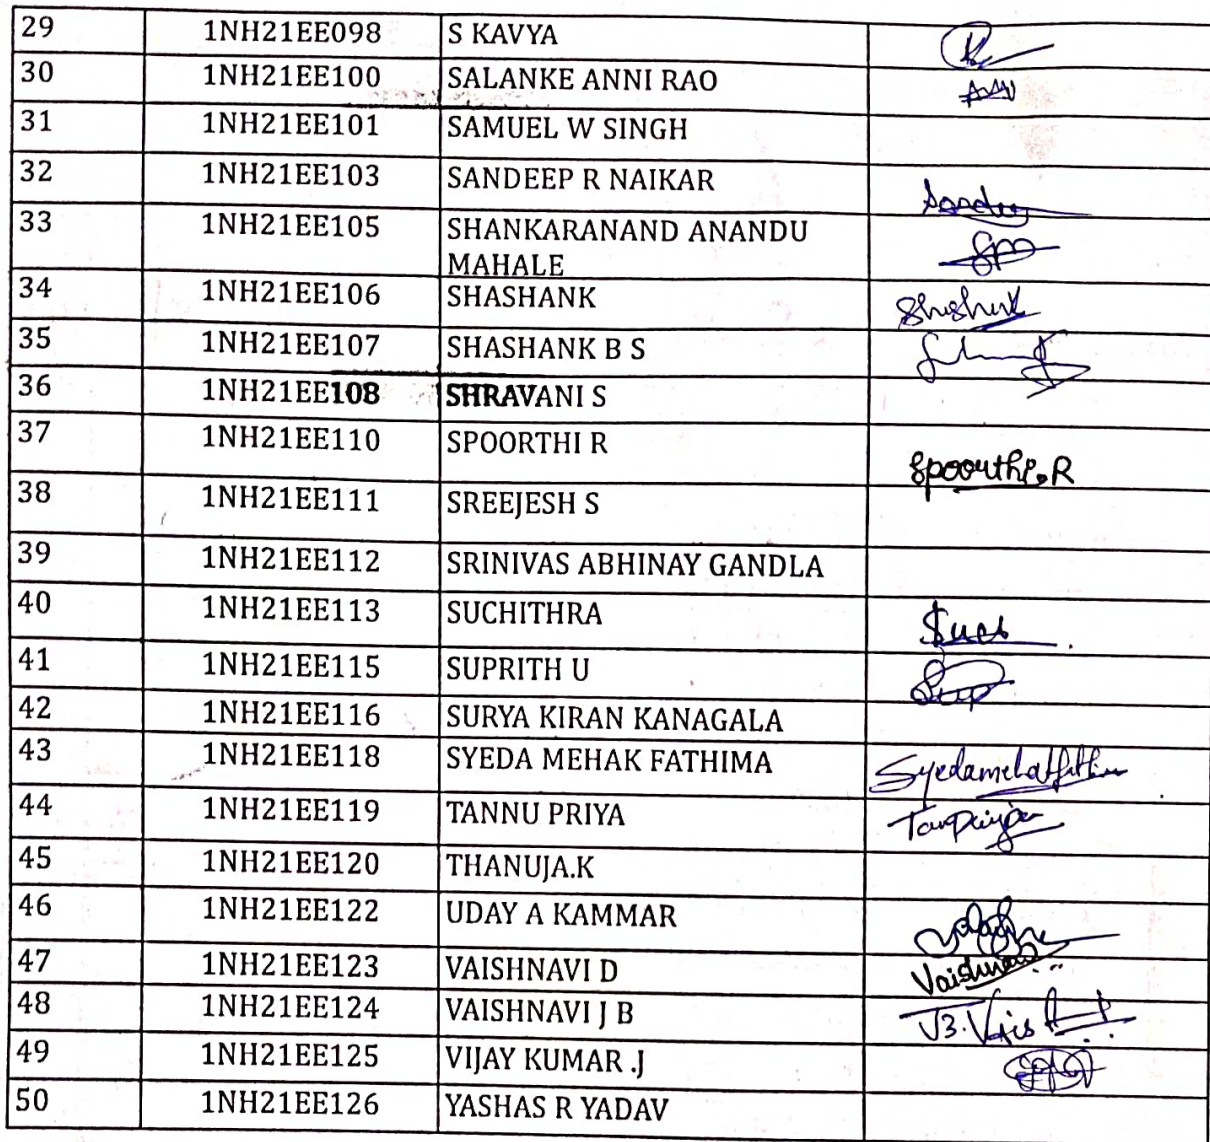 29 1NH21EE098 S KAVYA
30 1NH21EE100 SALANKE ANNI RAO
31 1NH21EE101 SAMUEL W SINGH
32 1NH21EE103 SANDEEP R NAIKAR Sandeep
33 1NH21EE105 SHANKARANAND ANANDU
MAHALE
34 1NH21EE106 SHASHANK
35 1NH21EE107 SHASHANK B S
36 1NH21EE108 SHRAVANI S
37 1NH21EE110 SPOORTHI R Spoorthi.R
38 1NH21EE111 SREEJESH S
39 1NH21EE112 SRINIVAS ABHINAY GANDLA
40 1NH21EE113 SUCHITHRA
41 1NH21EE115 SUPRITH U
42 1NH21EE116 SURYA KIRAN KANAGALA
43 1NH21EE118 SYEDA MEHAK FATHIMA
44 1NH21EE119 TANNU PRIYA
45 1NH21EE120 THANUJA.K
46 1NH21EE122 UDAY A KAMMAR
47 1NH21EE123 VAISHNAVI D Vaishnavi
48 1NH21EE124 VAISHNAVI J B
49 1NH21EE125 VIJAY KUMAR .J
50 1NH21EE126 YASHAS R YADAV